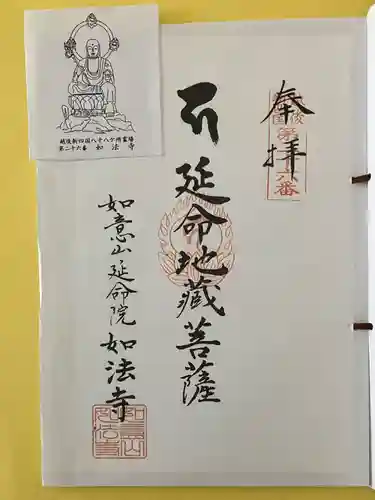 越後新四国八十八ケ所霊場
第二十六番 如法寺
奉拝
延命地蔵菩薩
如意山延命院 如法寺